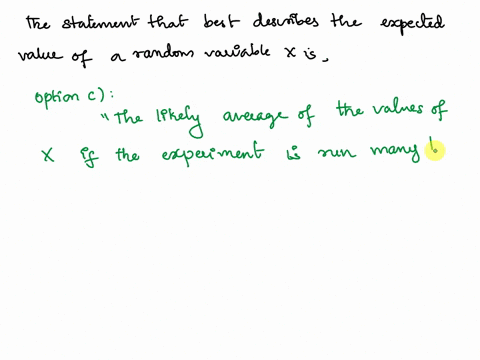 The statement that best describes the expected
value of a random variable X is,
option c):
"The likely average of the values of
X if the experiment is run many